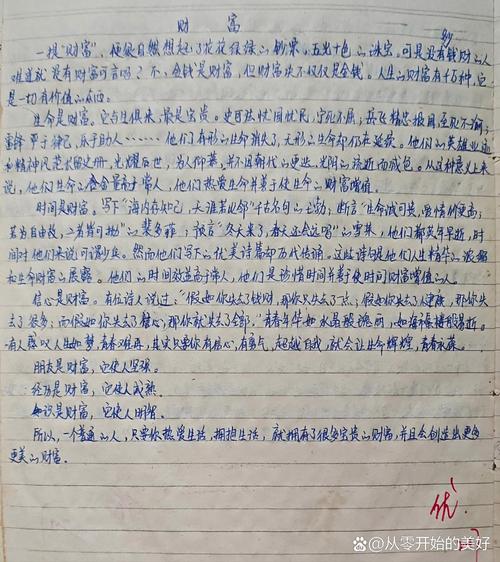 财 富
一提“财富”,便很自然想起了花花绿绿的钞票,五光十色的珠宝。可是没有钱财的人
难道就没有财富可言吗?不,金钱是财富,但财富决不仅仅是金钱。人生的财富有千万种,它
是一切有价值的东西。
生命是财富。它与生俱来,最是宝贵。史可法忧国忧民,宁死不屈;岳飞精忠报国,至死不渝;
雷锋严于律己,乐于助人……他们有形的生命消失了,无形的生命却仍在延续。他们的英雄业迹
和精神风范长留史册,光耀后世,为人仰慕,并不因朝代的更迭、光阴的流逝而减色。从这种意义上来
说,他们生命的含金量高于常人,他们热爱生命并善于使生命的财富增值。
时间是财富。写下“海内存知己,天涯若比邻”千古名句的王勃;断言“生命诚可贵,爱情价更高;
若为自由故,二者皆可抛”的裴多菲;预言“冬天来了,春天还会远吗”的雪莱,他们都英年早逝,时
间对他们来说可谓少矣。然而他们写下的优美诗篇却万代传诵。这些诗句是他们人生精华的浓缩
和生命财富的展露。他们的时间效益高于常人,他们是珍惜时间并善于使时间财富增值的人。
信心是财富。有位诗人说过:“假如你失去了钱财,那你只失去了一点;假如你失去了健康,那你失
去了很多;而假如你失去了信心,那你就失去了全部。”青春年华如水晶般绚丽,如海棠楼般易逝。
有人慕叹人生如梦,青春难再,其实只要你有信心,有勇气,超越自我,就会让生命辉煌,青春永葆。
朋友是财富,它使人坚强。
经历是财富,它使人成熟。
知识是财富,它使人明智。
所以,一个普通的人,只要你热爱生活,拥抱生活,就拥有了很多宝贵的财富,并且会创造出更多
更美的财富。
优
从零开始的美好